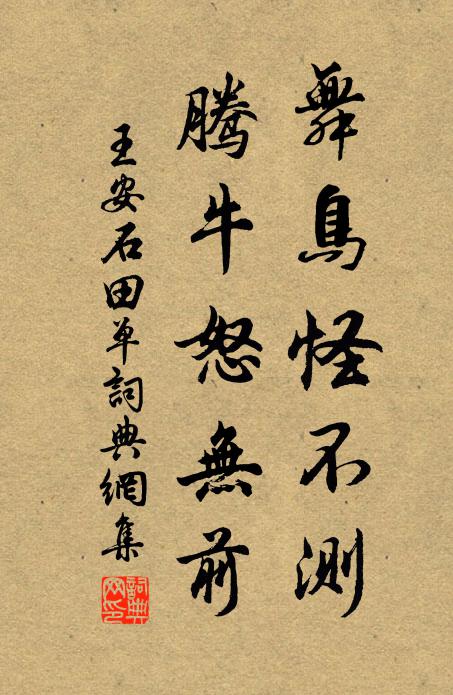 舞鳥怪不測
騰牛怒無前
王安石田单詞典網集
詞典网印